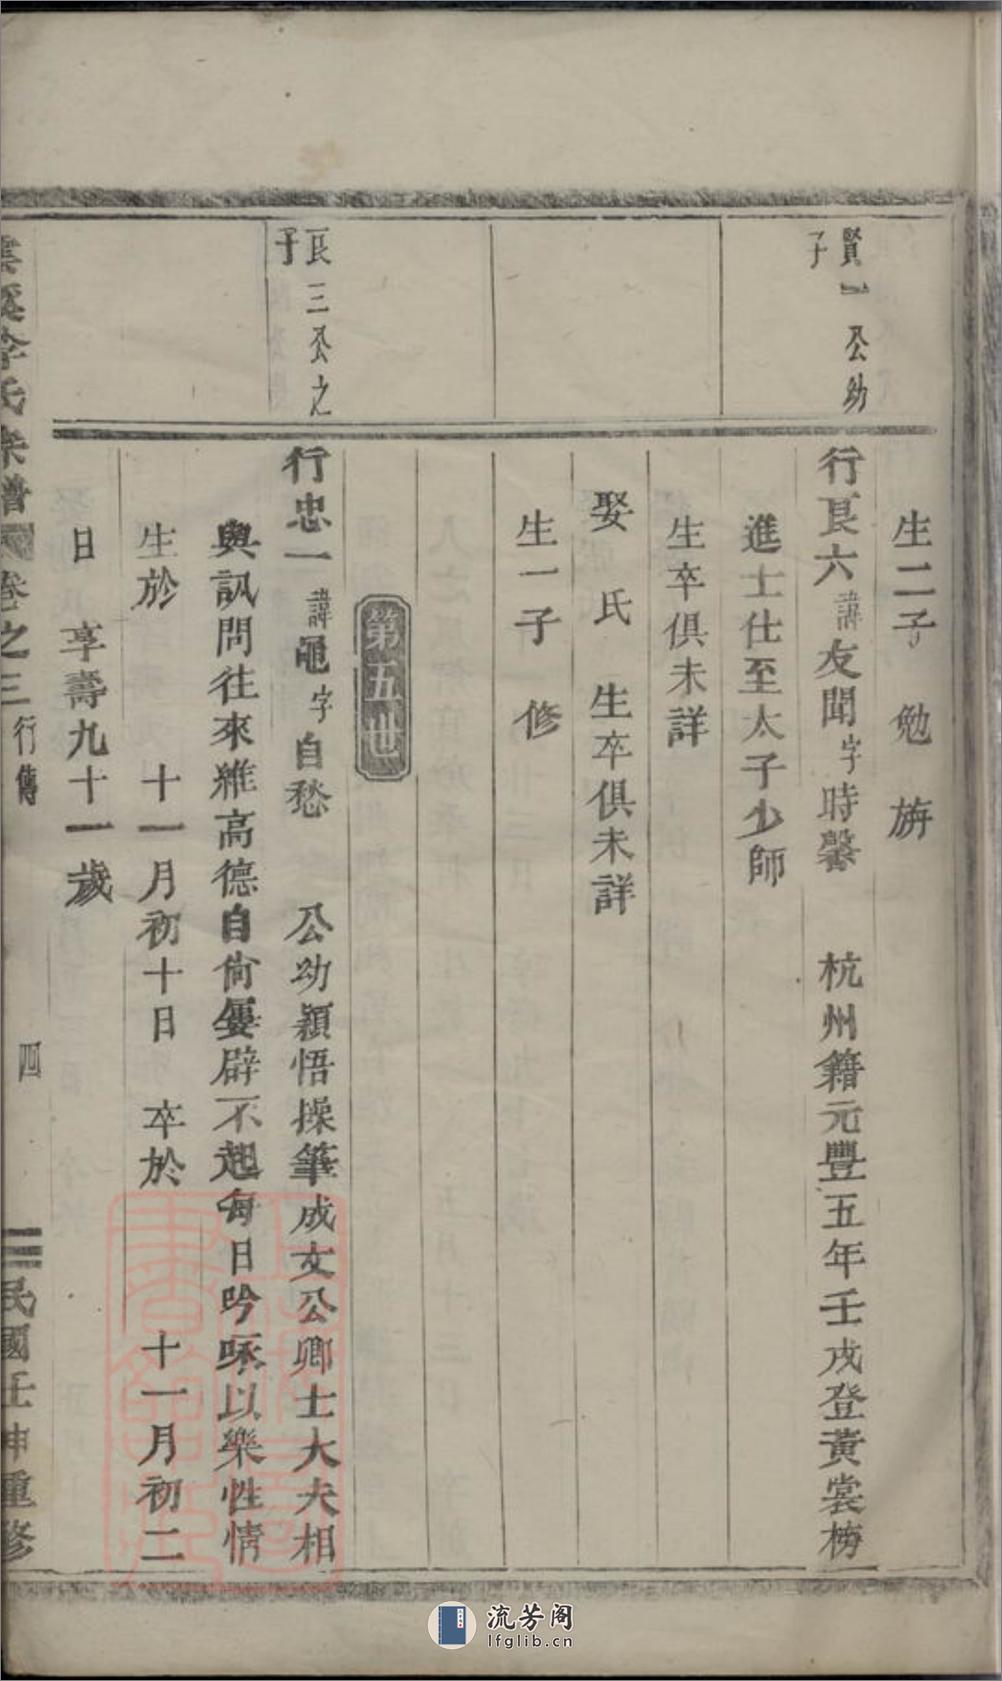 生二子 勉 旃
賢一公幼
子
行良六諱友聞字時馨 杭州籍元豐五年壬戌登黃裳榜
進士仕至太子少師
生卒俱未詳
娶 氏 生卒俱未詳
生一子 修
第五世
良三公之
子
行忠一諱黽字自愁 公幼穎悟操筆成文公卿士大夫相
與訊問往來維高德自尙屢辟不起每日吟咏以樂性情
生於 十一月初十日 卒於 十一月初二
日 享壽九十一歲
李氏宗譜 卷之三 行傳 四 民國壬申重修
流芳阁
lfglib.cn